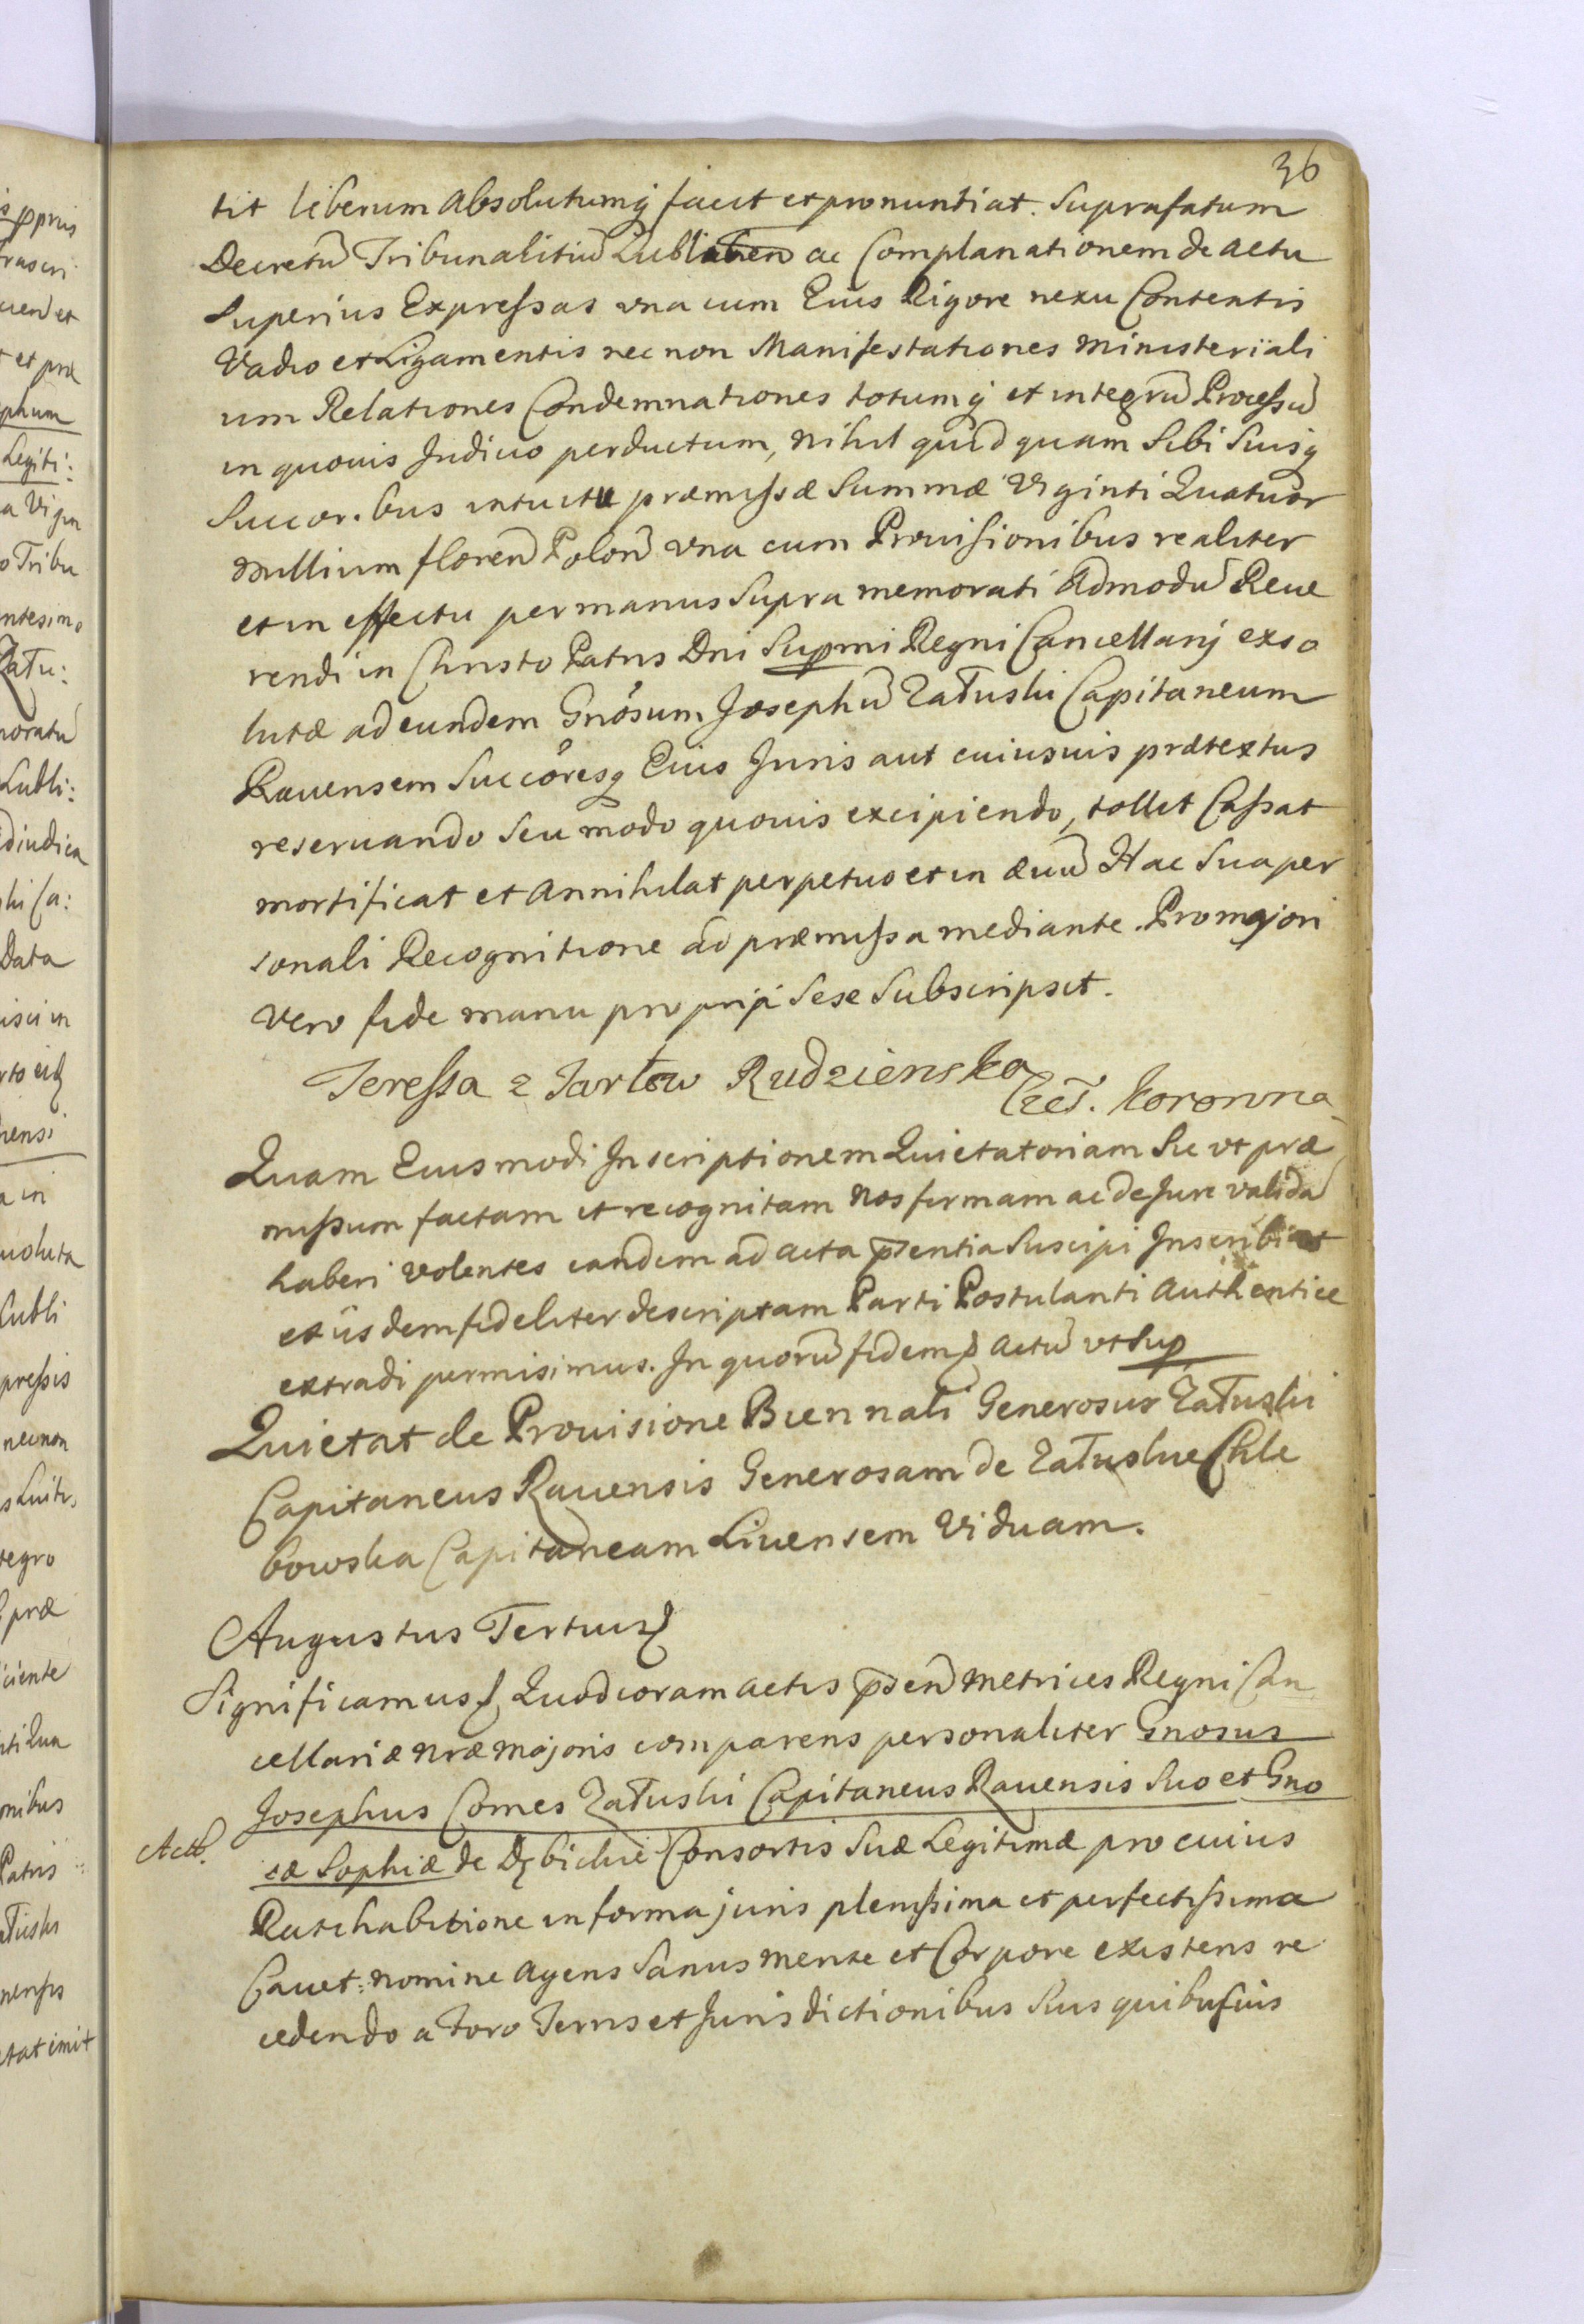 36
tit liberum absolutumq facit et pronuntiat. Suprafatum
Decretũ Tribunalitiũ Lublinen ac Complanationem de actu
Superius Expressas una cum Eius Rigore nexu Contentis
Vadio et Ligamentis nec non Manifestationes Ministeriali
um Relationes Condemnationes totumq et integrũ Processũ
in quouis Judicio perductum, nihil quidquam Sibi Suisq
Succor.bus intuitu præmissæ Summæ Viginti Quatuor
Millium floren Polon una cum Prouisionibus realiter
et in effectu per manus Supra memorati Admodũ Reue
rendi in Christo Patris Dni Supmi Regni Cancellarij exso
lutæ ad eundem Gnosum Josephũ Załuski Capitaneum
Rauensem Succoresq Eius Juris aut cuiusuis prætextus
reseruando seu modo quouis excipiendo, tollit Cassat
mortificat et annihilat perpetuo et in æuũ Hac Sua per
sonali Recognitione ad præmissa mediante. Pro majori
vero fide manu proprija Sese Subscripsit.
Teressa z Tarłow Rudzienska
Czes. Koronna
Quam Eiusmodi Inscriptionem Quietatoriam Sic ut præ
missum factam et recognitam Nos firmam ac de Jure validã
haberi volentes eandem ad acta p̃ntia Suscipi Inscribi et
ex iisdem fideliter descriptam Parti Postulanti Authentice
extradi permisimus. In quorũ fidem Actũ ut sup
Quietat de Prouisione Biennali Generosus Załuski
Capitaneus Rauensis Generosam de Załuskie Chle
bowska Capitaneam Liuensem Viduam.
Augustus Tertius
Significamus Quod coram actis p̃sen Metrices Regni Can
cellariæ nræ Majoris comparens personaliter Gnosus
Josephus Comes Załuski Capitaneus Rauensis Suo et Gno
Actt.
sæ Sophiæ de Dębickie Consortis Suæ Legitimæ pro cuius
Ratihabitione in forma juris plenissima et perfectissima
Cauet: nomine agens Sanus mente et Corpore existens re
cedendo a Foro Terris et Jurisdictionibus Suis quibusuis